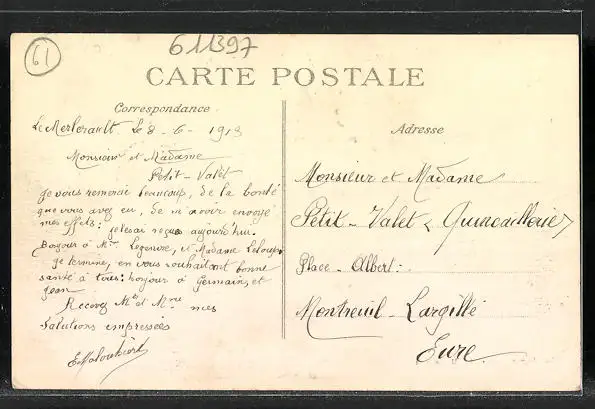 61
611397
CARTE POSTALE
Correspondance
Adresse
Le Merlerault le 8-6-1913
Monsieur et Madame
Petit-Valet
Je vous remercie beaucoup, de la bonté
que vous avez eu, de m'avoir envoyé
mes effets: je les ai reçus aujourd'hui.
Bonjour à Mr Legendre, et Madame
je termine, en vous souhaitant bonne
santé à tous: bonjour à Germain, et
Jean
Recevez Mr et Mme mes
Salutions empressées
Monsieur et Madame
Petit-Valet (Quincaillerie)
Place-Albert:-
Montreuil-Largillé
Eure